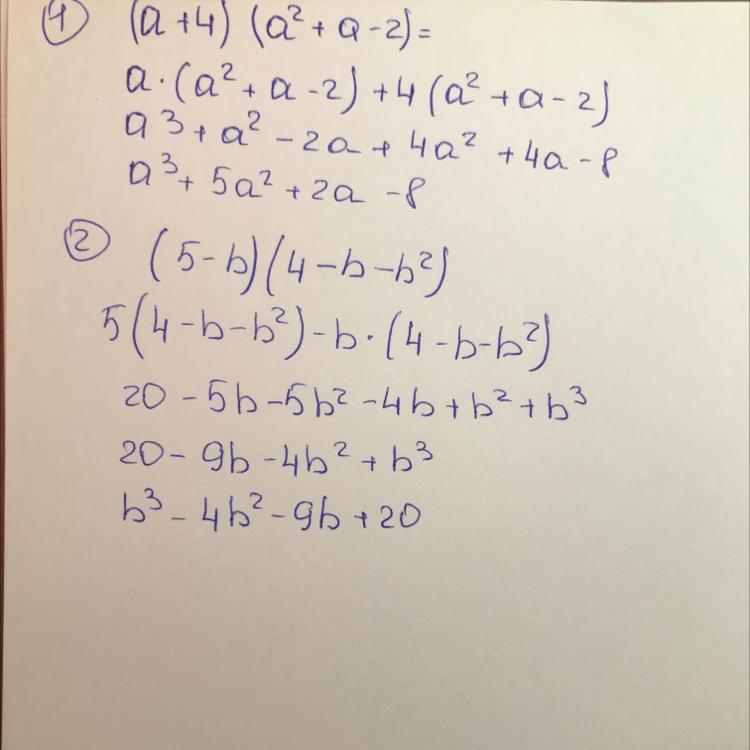 ① (a+4) (a²+a-2)=
a·(a²+a-2)+4(a²+a-2)
a³+a²-2a+4a²+4a-8
a³+5a²+2a-8
② (5-b)(4-b-b²)
5(4-b-b²)-b·(4-b-b²)
20-5b-5b²-4b+b²+b³
20-9b-4b²+b³
b³-4b²-9b+20